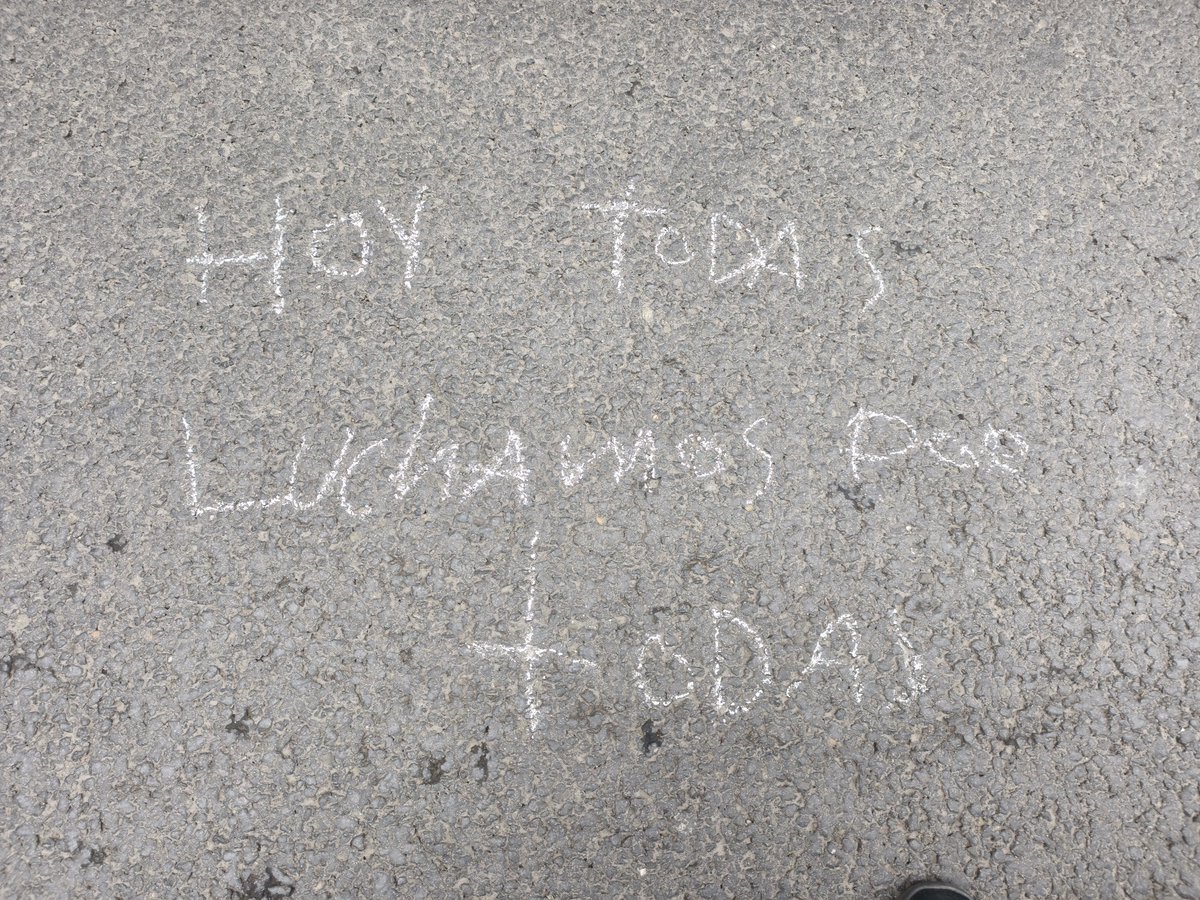 HOY TODAS
LUchAmos Por
todAS